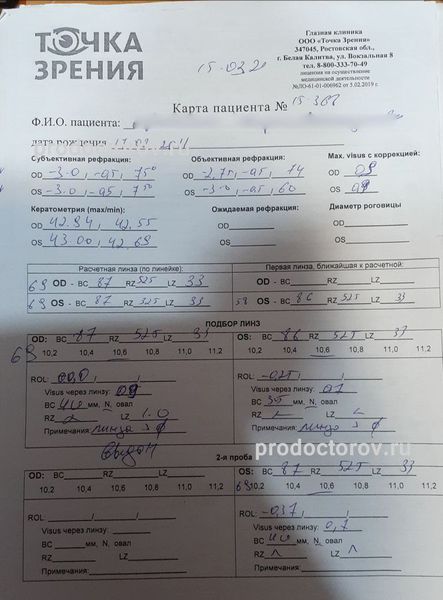 ТОЧКА
ЗРЕНИЯ
Глазная клиника
ООО «Точка Зрения»
347045, Ростовская обл.,
г. Белая Калитва, ул. Вокзальная 8
тел. 8-800-333-70-49
лицензия на осуществление
медицинской деятельности
№ЛО-61-01-006962 от 5.02.2019 г.
15.03.2
Карта пациента № 15-388
Ф.И.О. пациента:
дата рождения
prodoctorov.ru
Субъективная рефракция: Объективная рефракция: Max. visus с коррекцией:
OD -3.0, -0,5, 75° OD -2,75, -0,5, 14 OD 0,9
OS -3.0, -0,5, 75° OS -3.0, -0,5, 60 OS 0,9
Кератометрия (max/min): Ожидаемая рефракция: Диаметр роговицы
OD 42.94, 42,55 OD OD
OS 43.00, 42,69 OS OS
Расчетная линза (по линейке): Первая линза, ближайшая к расчетной:
69 OD - BC 87 RZ 525 LZ 33 OD - BC RZ LZ
69 OS - BC 87 RZ 525 LZ 33 58 OS - BC 86 RZ 525 LZ 33
ПОДБОР ЛИНЗ
OD: BC 87 RZ 525 LZ 33 OS: BC 86 RZ 525 LZ 33
69 10,2 10,4 10,6 10,8 11,0 11,2 10,2 10,4 10,6 10,8 11,0 11,2
ROL: 00,0 ROL: -0,25
Visus через линзу: 0,9 Visus через линзу: 0,7
BC 40 мм, N, овал BC 35 мм, N, овал
RZ LZ 1.0 RZ LZ
Примечания линза Примечания: линза
prodoctorov.ru
2-я проба
OD: BC RZ LZ OS: BC 87 RZ 525 LZ 33
10,2 10,4 10,6 10,8 11,0 11,2 69 10,2 10,4 10,6 10,8 11,0 11,2
ROL: ROL: -0,37
Visus через линзу: Visus через линзу: 0,7
BC мм, N, овал BC 40 мм, N, овал
RZ LZ RZ LZ
Примечания: Примечания: